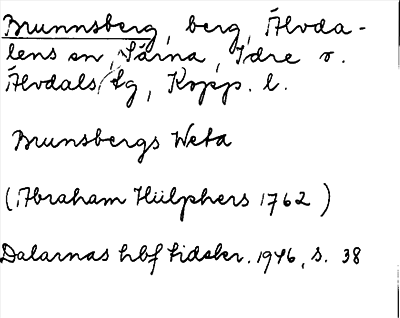 Brunnsberg, berg, Älvda-
lens sn, Särna, Idre o.
Älvdals tg, Kopp. l.
Brunsbergs Weta
(Abraham Hülphers 1762)
Dalarnas hbf tidskr. 1946, s. 38